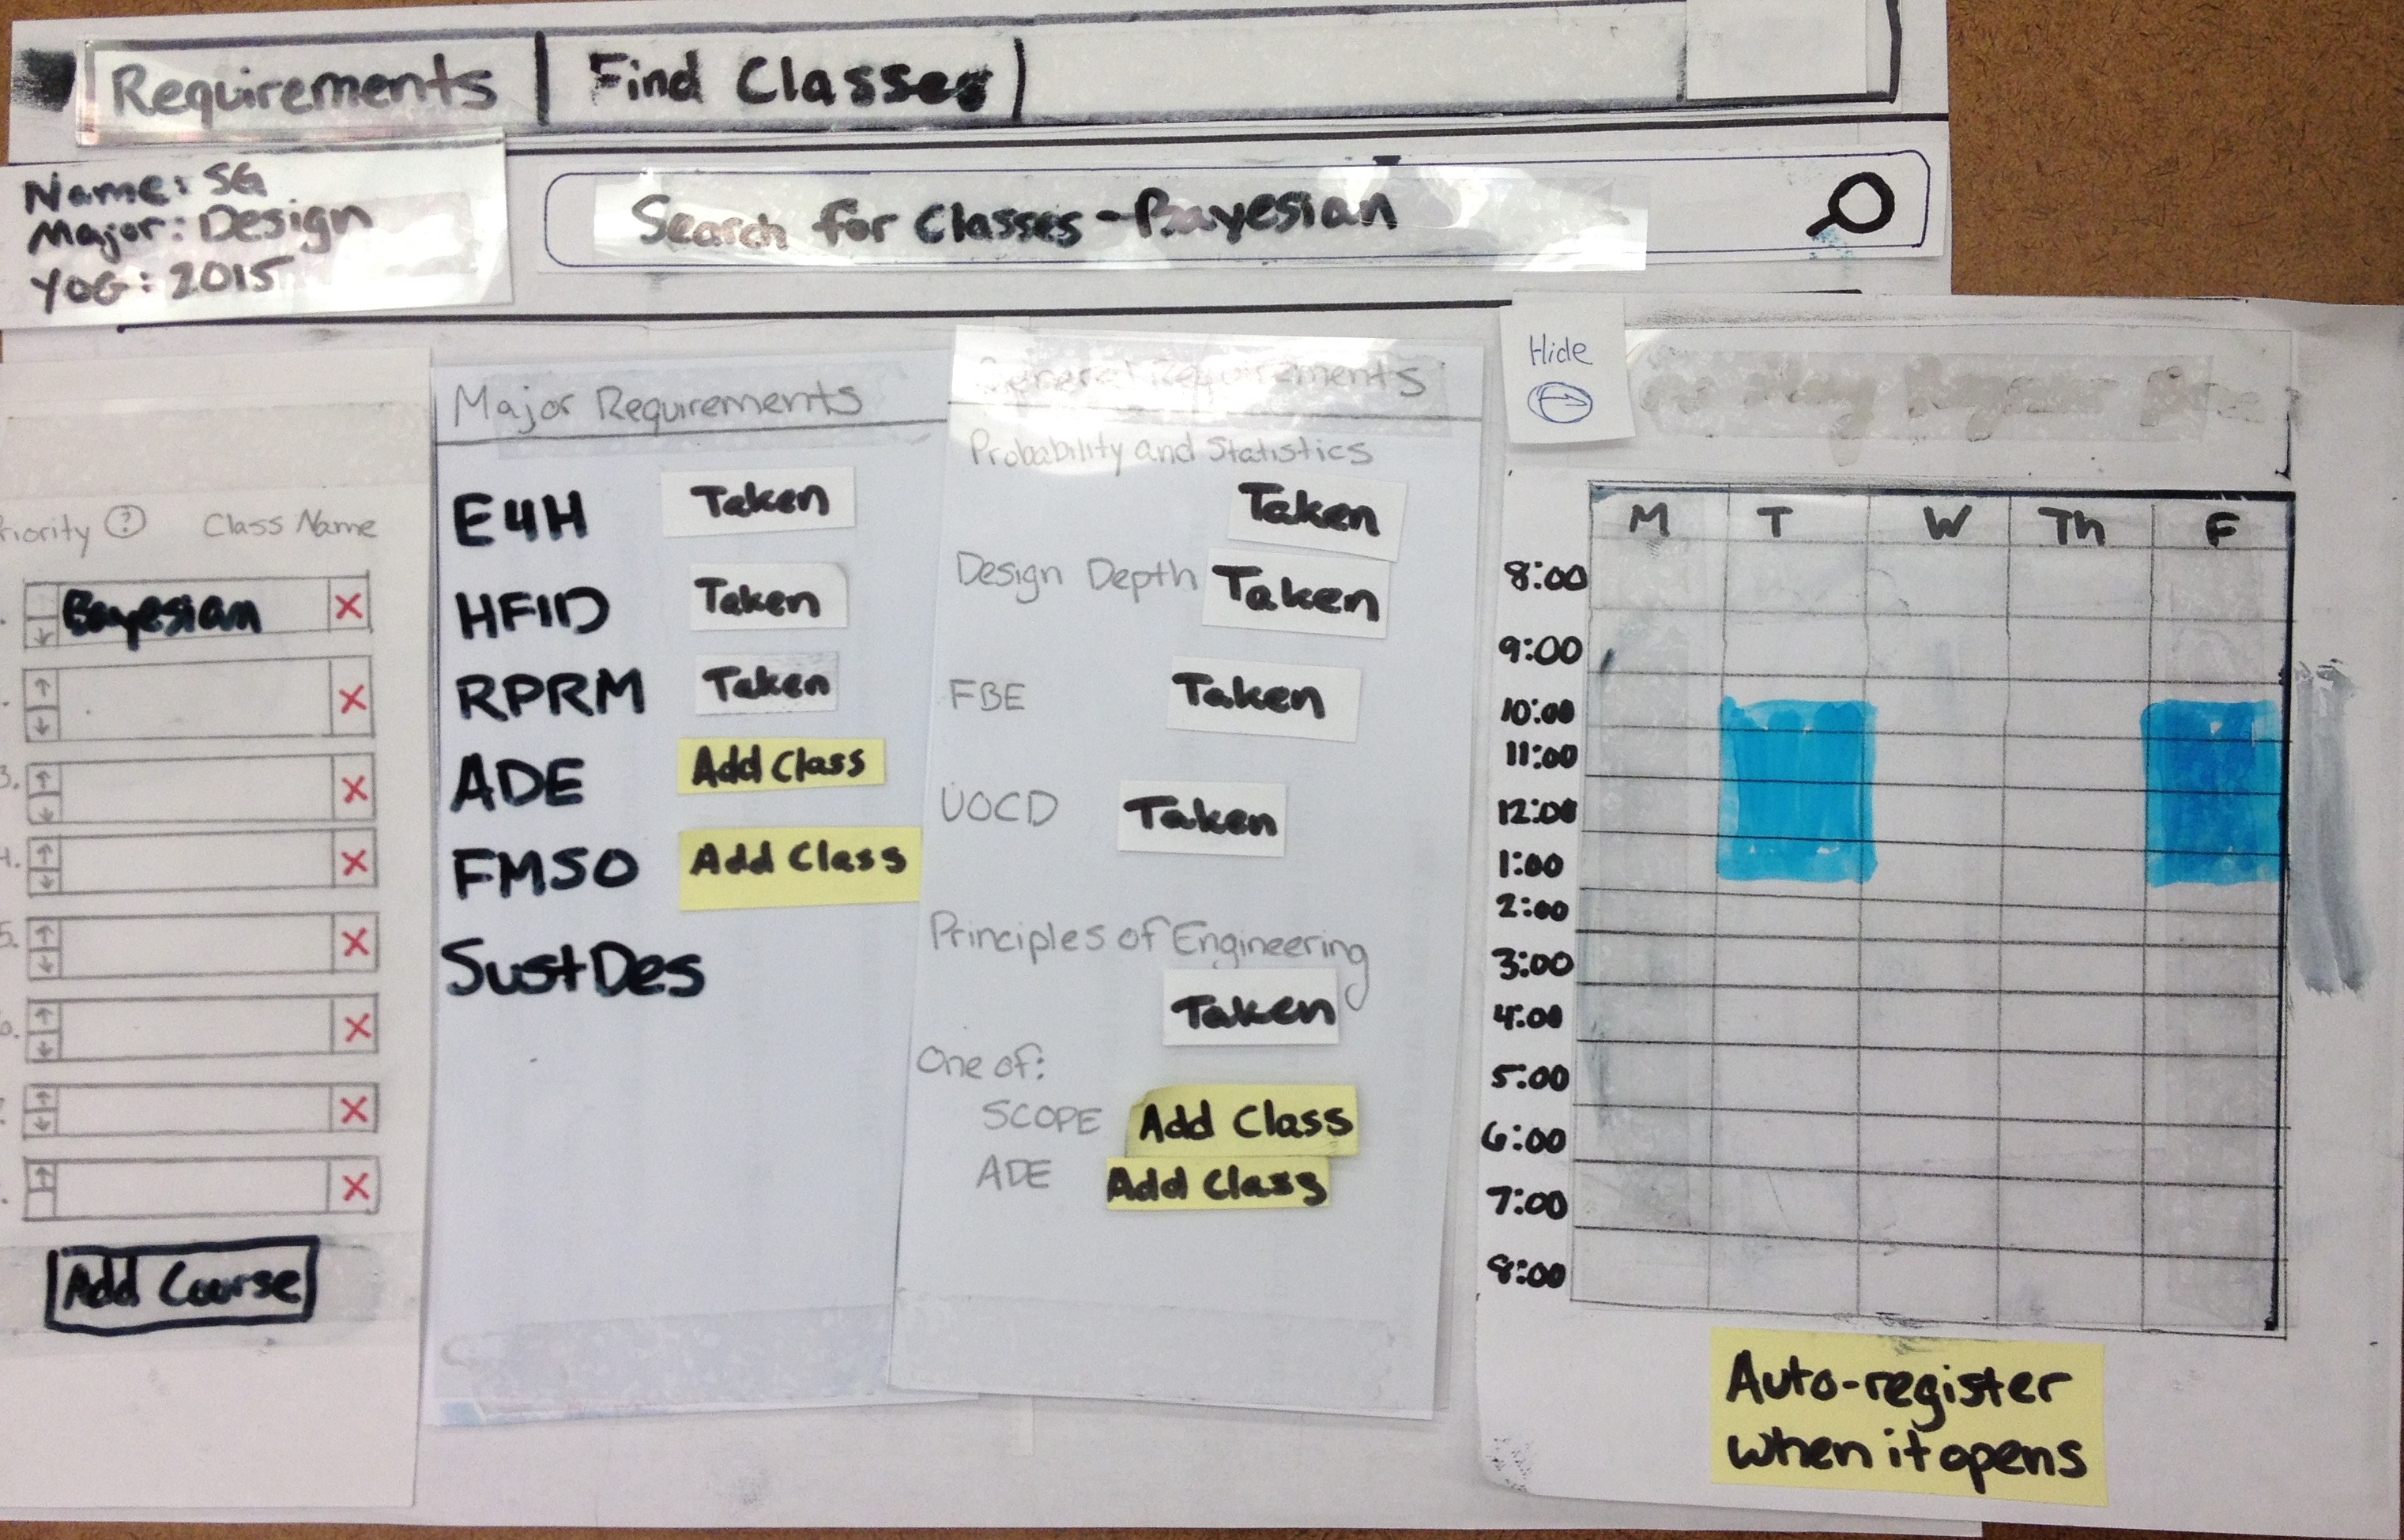 Requirements | Find Classes
Name: SG
Major: Design
YOG: 2015
Search for Classes - Bayesian
Priority ? Class Name
Bayesian X
X
3. X
4. X
5. X
6. X
X
X
Add Course
Major Requirements
E4H Taken
HFID Taken
RPRM Taken
ADE Add Class
FMSO Add Class
SustDes
General Requirements
Probability and Statistics
Taken
Design Depth Taken
FBE Taken
UOCD Taken
Principles of Engineering
Taken
One of:
SCOPE Add Class
ADE Add Class
Hide
M T W Th F
8:00
9:00
10:00
11:00
12:00
1:00
2:00
3:00
4:00
5:00
6:00
7:00
8:00
Auto-register
when it opens